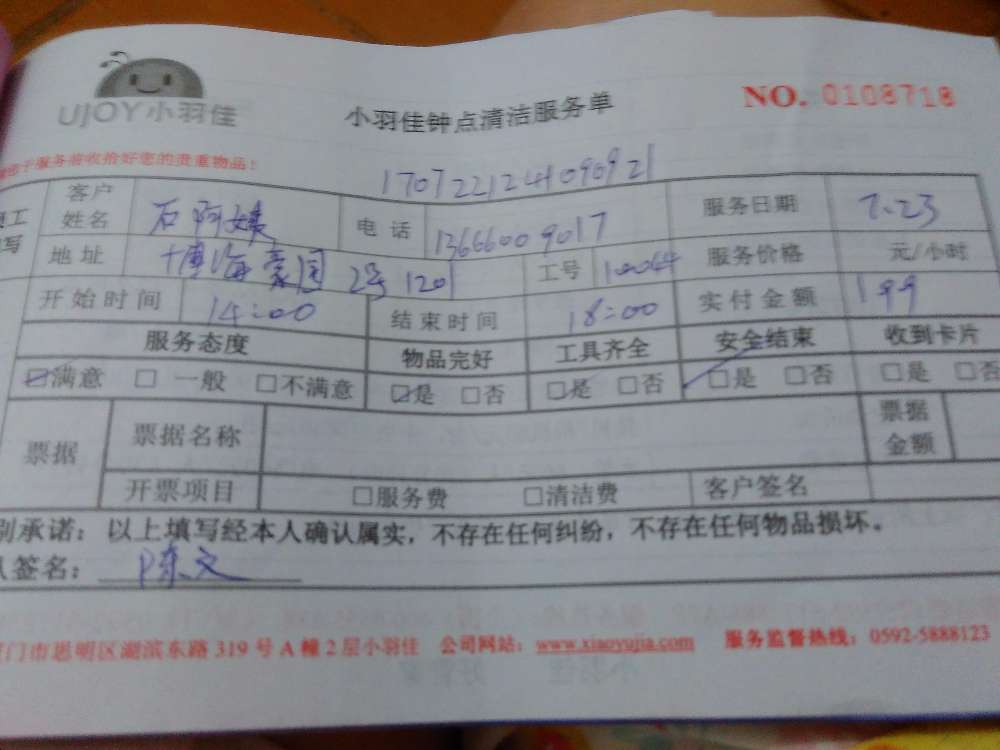 UJOY小羽佳
小羽佳钟点清洁服务单
NO. 0108718
服务将收拾好您的贵重物品！
1707221241090921
客户姓名 石阿姨 电话 13666009017 服务日期 7.23
地址 博海豪园 2号 1201 工号 10064 服务价格 元/小时
开始时间 14:00 结束时间 18:00 实付金额 199
服务态度 物品完好 工具齐全 安全结束 收到卡片
☑满意 □一般 □不满意 ☑是 □否 ☑是 □否 □是 □否 □是 □否
票据 票据名称 票据金额
开票项目 □服务费 □清洁费 客户签名
承诺：以上填写经本人确认属实，不存在任何纠纷，不存在任何物品损坏。
签名： 陈文
门市思明区湖滨东路 319 号 A 幢 2 层小羽佳 公司网站：www.xiaoyujia.com 服务监督热线：0592-5888123